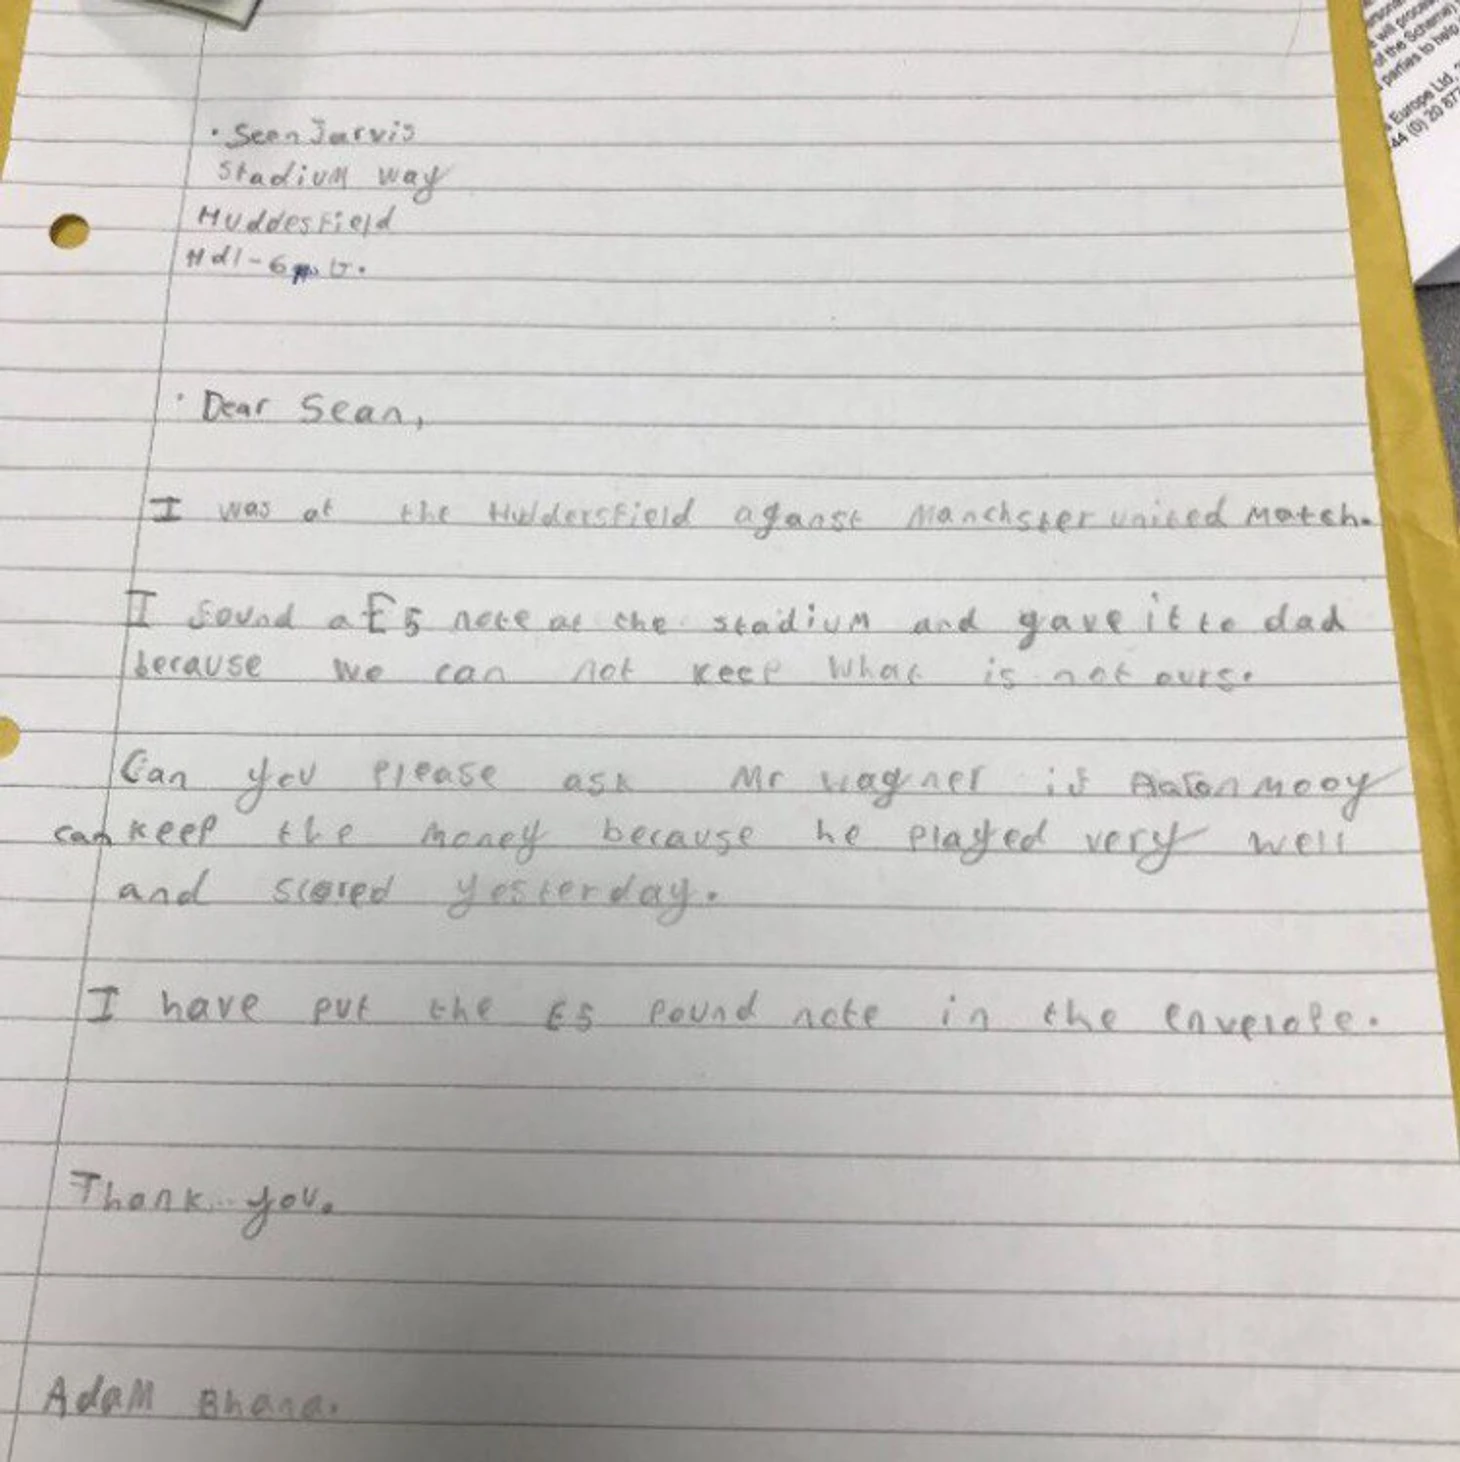 · Seen Jarvis
Stadium way
Huddesfield
Hd1-6
· Dear Sean,
I was at the Huddersfield aganst Manchster united match.
I found a £5 note at the stadium and gave it to dad
because we can not keep what is not ours.
Can you please ask Mr wagner if Aaron Mooy
can keep the money because he played very well
and scored yesterday.
I have put the £5 pound note in the envelope.
Thank you.
Adam Bhana.
will proce
of the Scheme)
parties to help
Europe Ltd,
44 (0) 20 87